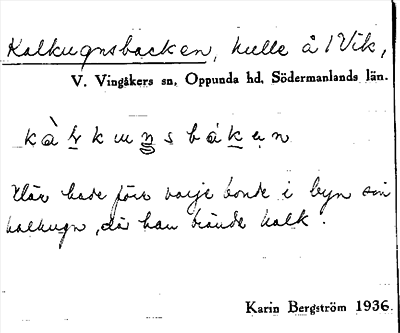 Kalkugnsbacken, kulle å 1 Vik,
V. Vingåkers sn, Oppunda hd, Södermanlands län.
Här hade förr varje bonde i byn sin
kalkugn, där han brände kalk.
Karin Bergström 1936.